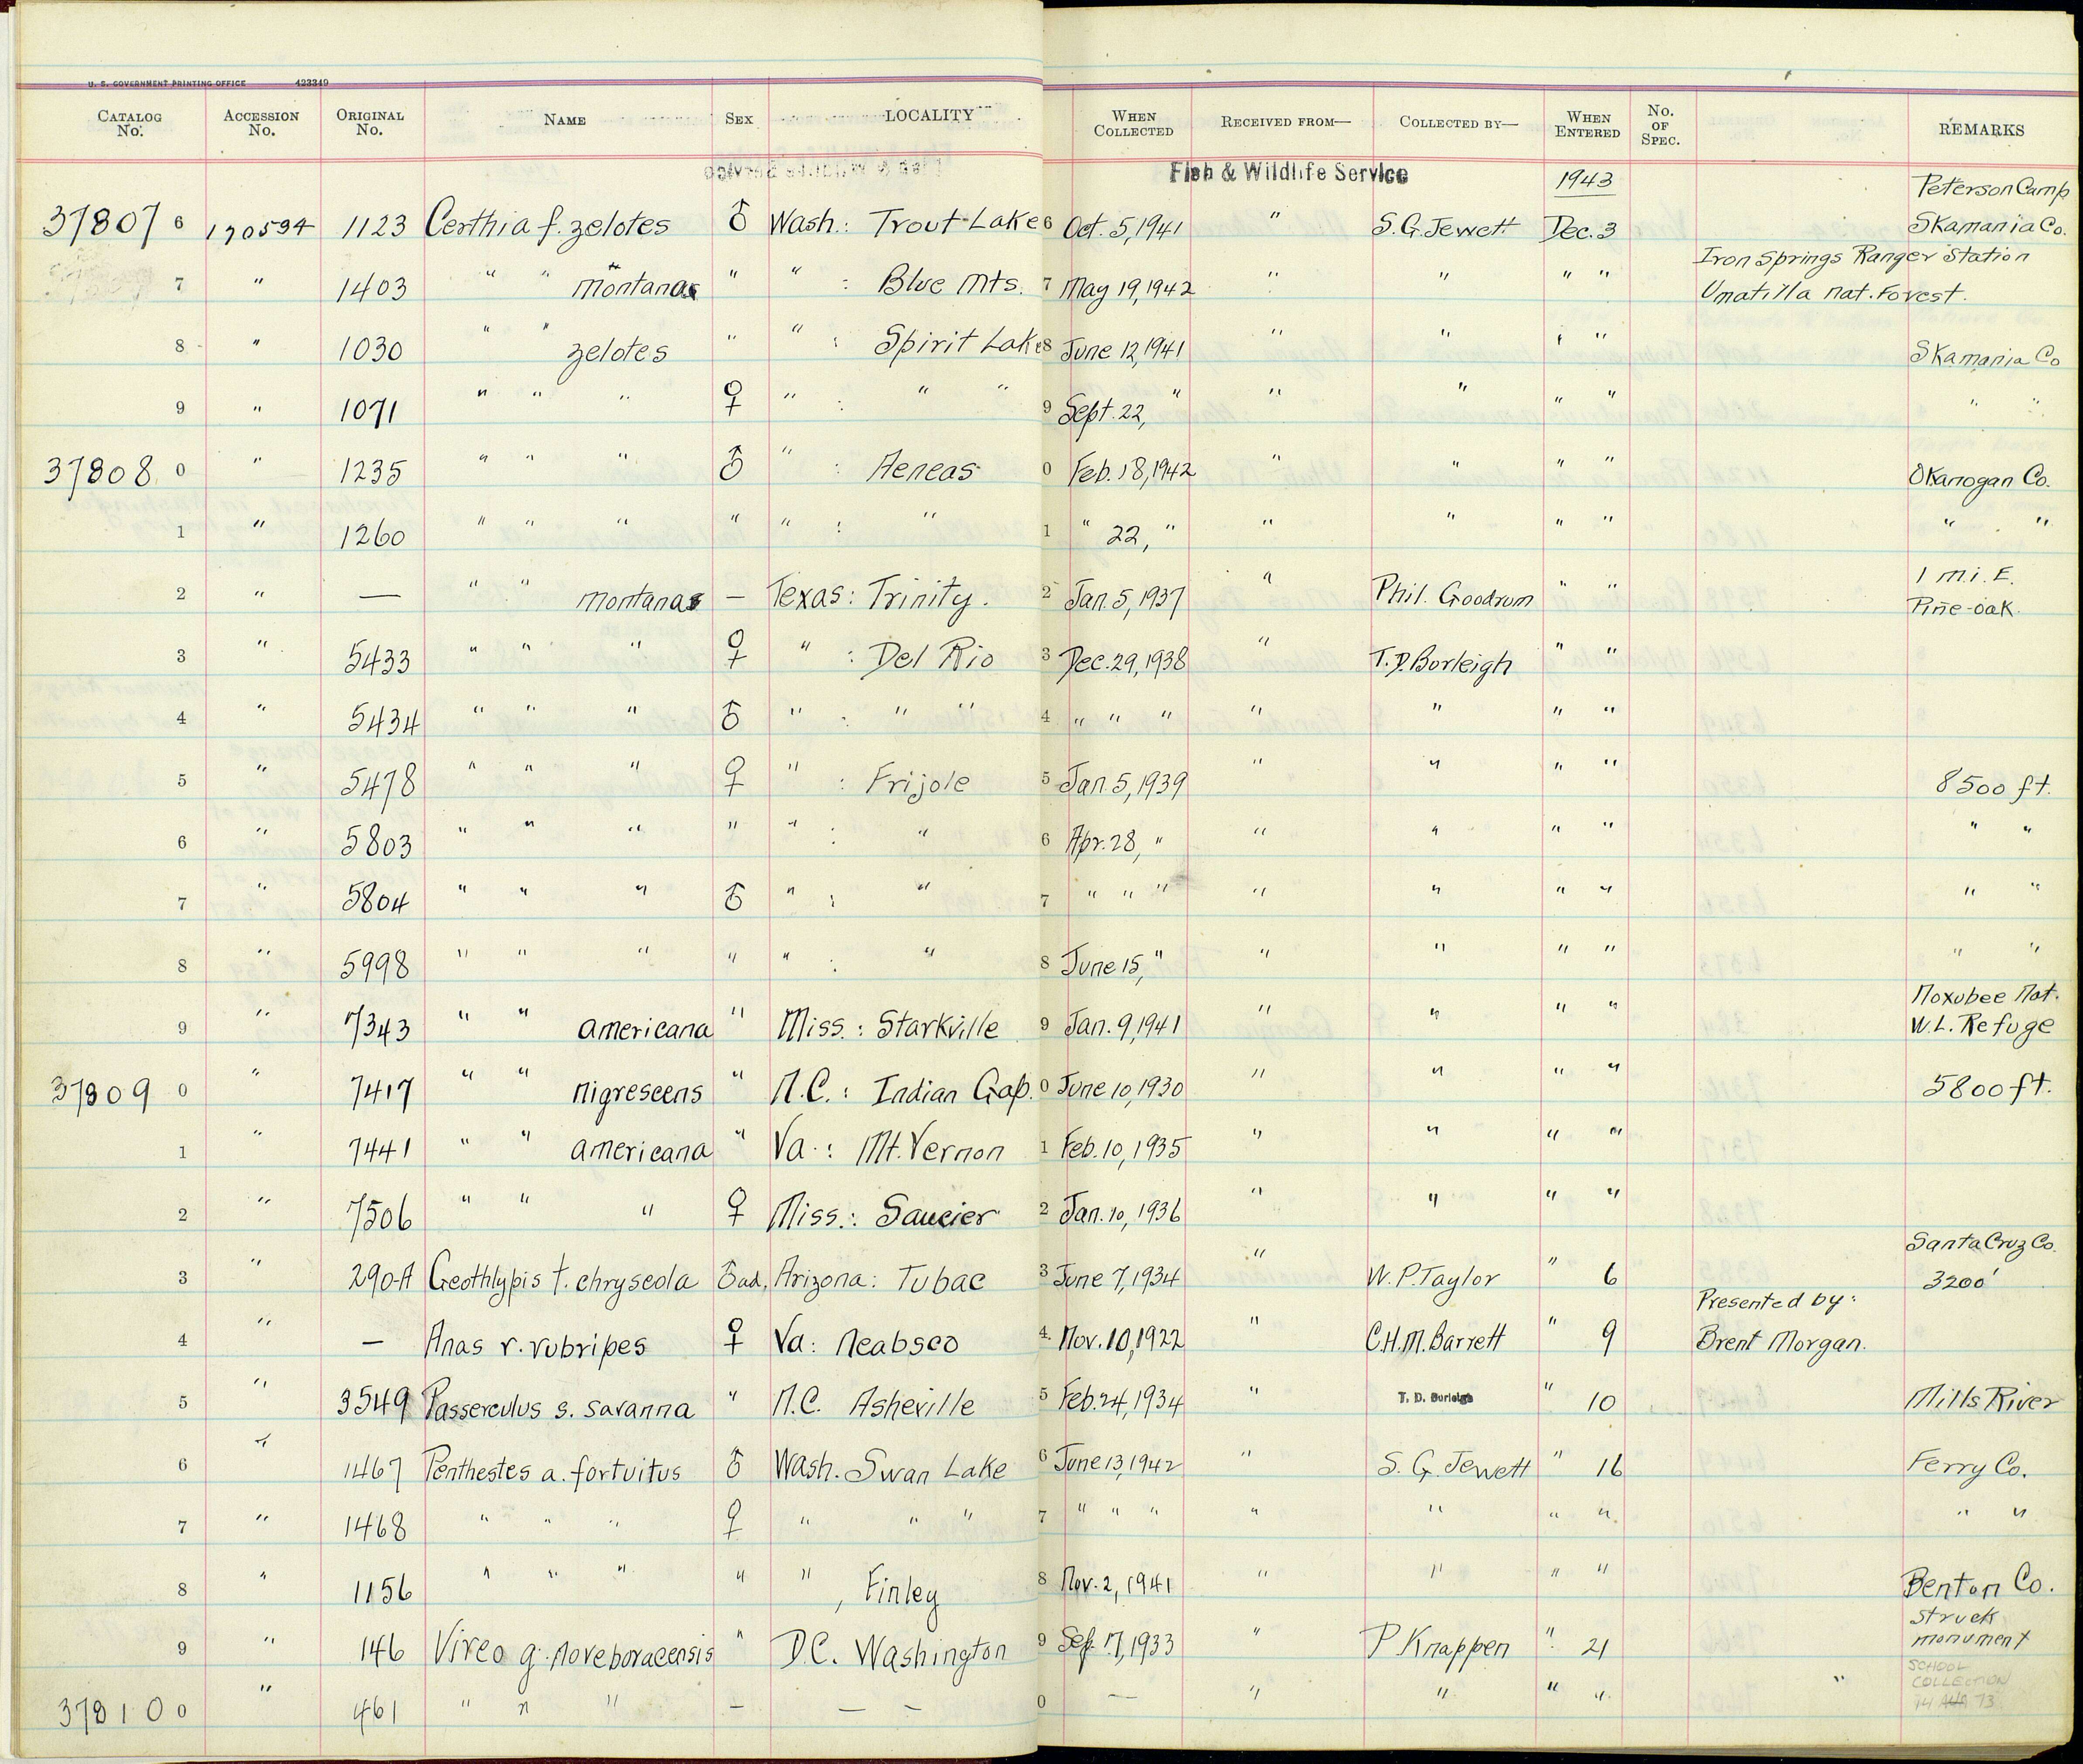 U. S. GOVERNMENT PRINTING OFFICE 423349
CATALOG No. ACCESSION No. ORIGINAL No. NAME SEX LOCALITY WHEN COLLECTED RECEIVED FROM— COLLECTED BY— WHEN ENTERED No. OF SPEC. REMARKS
Fish & Wildlife Service 1943 Peterson Camp
37807 6 170594 1123 Certhia f. zelotes ♂ Wash.: Trout Lake 6 Oct. 5, 1941 " S. G. Jewett Dec. 3 Skamania Co.
7 " 1403 " " montana " " : Blue Mts. 7 May 19, 1942 " " " " Iron Springs Ranger Station
Umatilla Nat. Forest.
8 " 1030 " " zelotes " " : Spirit Lake 8 June 12, 1941 " " " " Skamania Co
9 " 1071 " " " ♀ " : " " 9 Sept. 22, " " " " " " "
37808 0 " 1235 " " " ♂ " : Aeneas 0 Feb. 18, 1942 " " " " Okanogan Co.
1 " 1260 " " " " " : " 1 " 22, " " " " " " "
2 " — " " montana — Texas: Trinity. 2 Jan. 5, 1937 " Phil. Goodrum " " 1 mi. E.
Pine-oak.
3 " 5433 " " " ♀ " : Del Rio 3 Dec. 29, 1938 " T. D. Burleigh " "
4 " 5434 " " " ♂ " : " " 4 " " " " " " "
5 " 5478 " " " ♀ " : Frijole 5 Jan. 5, 1939 " " " " 8500 ft.
6 " 5803 " " " " " : " 6 Apr. 28, " " " " " " "
7 " 5804 " " " ♂ " : " 7 " " " " " " " " "
8 " 5998 " " " " " : " 8 June 15, " " " " " " "
9 " 7343 " " americana " Miss.: Starkville 9 Jan. 9, 1941 " " " " Noxubee Nat.
W. L. Refuge
37809 0 " 7417 " " nigrescens " N.C.: Indian Gap. 0 June 10, 1930 " " " " 5800 ft.
1 " 7441 " " americana " Va.: Mt. Vernon 1 Feb. 10, 1935 " " " "
2 " 7506 " " " ♀ Miss.: Saucier 2 Jan. 10, 1936 " " " "
3 " 290-A Geothlypis t. chryseola ♂ ad. Arizona: Tubac 3 June 7, 1934 " W. P. Taylor " 6 Santa Cruz Co.
3200'
4 " — Anas r. rubripes ♀ Va: Neabsco 4 Nov. 10, 1922 " C. H. M. Barrett " 9 Presented by:
Brent Morgan.
5 " 3549 Passerculus s. savanna " N.C. Asheville 5 Feb. 24, 1934 " T. D. Burleigh " 10 Mills River
6 " 1467 Penthestes a. fortuitus ♂ Wash. Swan Lake 6 June 13, 1942 " S. G. Jewett " 16 Ferry Co.
7 " 1468 " " " ♀ " " " 7 " " " " " " " " "
8 " 1156 " " " " " , Finley 8 Nov. 2, 1941 " " " " Benton Co.
9 " 146 Vireo g. noveboracensis " D.C. Washington 9 Sep. 7, 1933 " P Knappen " 21 struck
monument
37810 0 " 461 " " " — — — 0 — " " " " " SCHOOL
COLLECTION
14 73